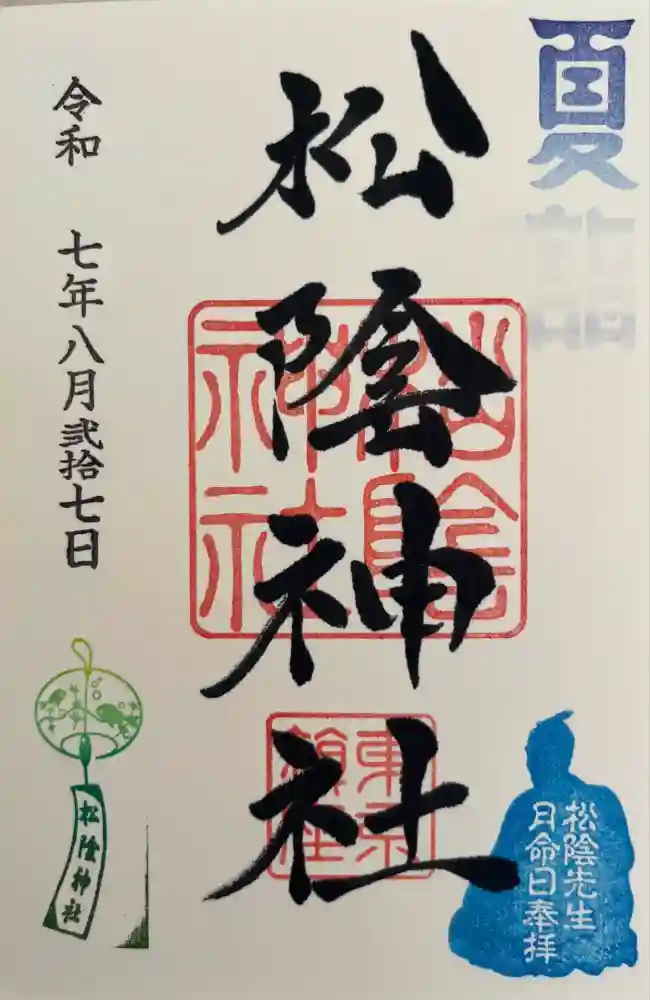 夏詣
松陰神社
松陰神社
東京鎮座
令和 七年八月弐拾七日
松陰神社
松陰先生
月命日奉拝